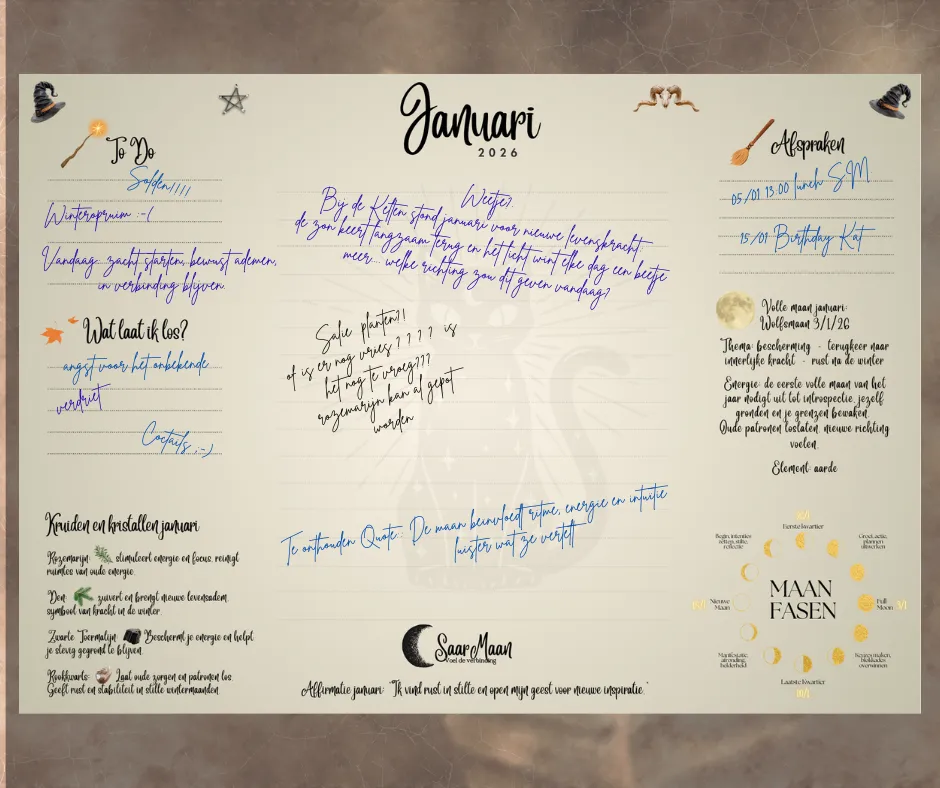 Januari
2026
To Do
Solden!!!!
Winteropruim :-(
Vandaag: zacht starten, bewust ademen,
in verbinding blijven.
Wat laat ik los?
angst voor het onbekende
verdriet
Coctails ;-)
Kruiden en kristallen januari
Rozemarijn: stimuleert energie en focus, reinigt
ruimtes van oude energie.
Den: zuivert en brengt nieuwe levensadem,
symbool van kracht in de winter.
Zwarte Toermalijn: Beschermt je energie en helpt
je stevig gegrond te blijven.
Rookkwarts: Laat oude zorgen en patronen los.
Geeft rust en stabiliteit in stille wintermaanden.
Weetje?:
Bij de Kelten stond januari voor nieuwe levenskracht,
de zon keert langzaam terug en het licht wint elke dag een beetje
meer... welke richting zou dit geven vandaag?
Salie planten?!
of is er nog vries ? ? ? ? is
het nog te vroeg???
rozemarijn kan al gepot
worden
Te onthouden Quote:: De maan beïnvloedt ritme, energie en intuïtie
luister wat ze vertelt
SaarMaan
Voel de verbinding
Affirmatie januari: "Ik vind rust in stilte en open mijn geest voor nieuwe inspiratie."
Afspraken
05/01 13:00 lunch S.M
15/01 Birthday Kat
Volle maan januari:
Wolfsmaan 3/1/26
Thema: bescherming - terugkeer naar
innerlijke kracht - rust na de winter
Energie: de eerste volle maan van het
jaar nodigt uit tot introspectie, jezelf
gronden en je grenzen bewaken.
Oude patronen loslaten, nieuwe richting
voelen.
Element: aarde
Eerste kwartier
Begin, intenties
zetten, stilte,
reflectie
Groei, actie,
plannen
uitwerken
Nieuwe
Maan
MAAN
FASEN
Full
Moon
Manifestatie,
afronding,
helderheid
Keuzes maken,
blokkades
overwinnen
Laatste kwartier